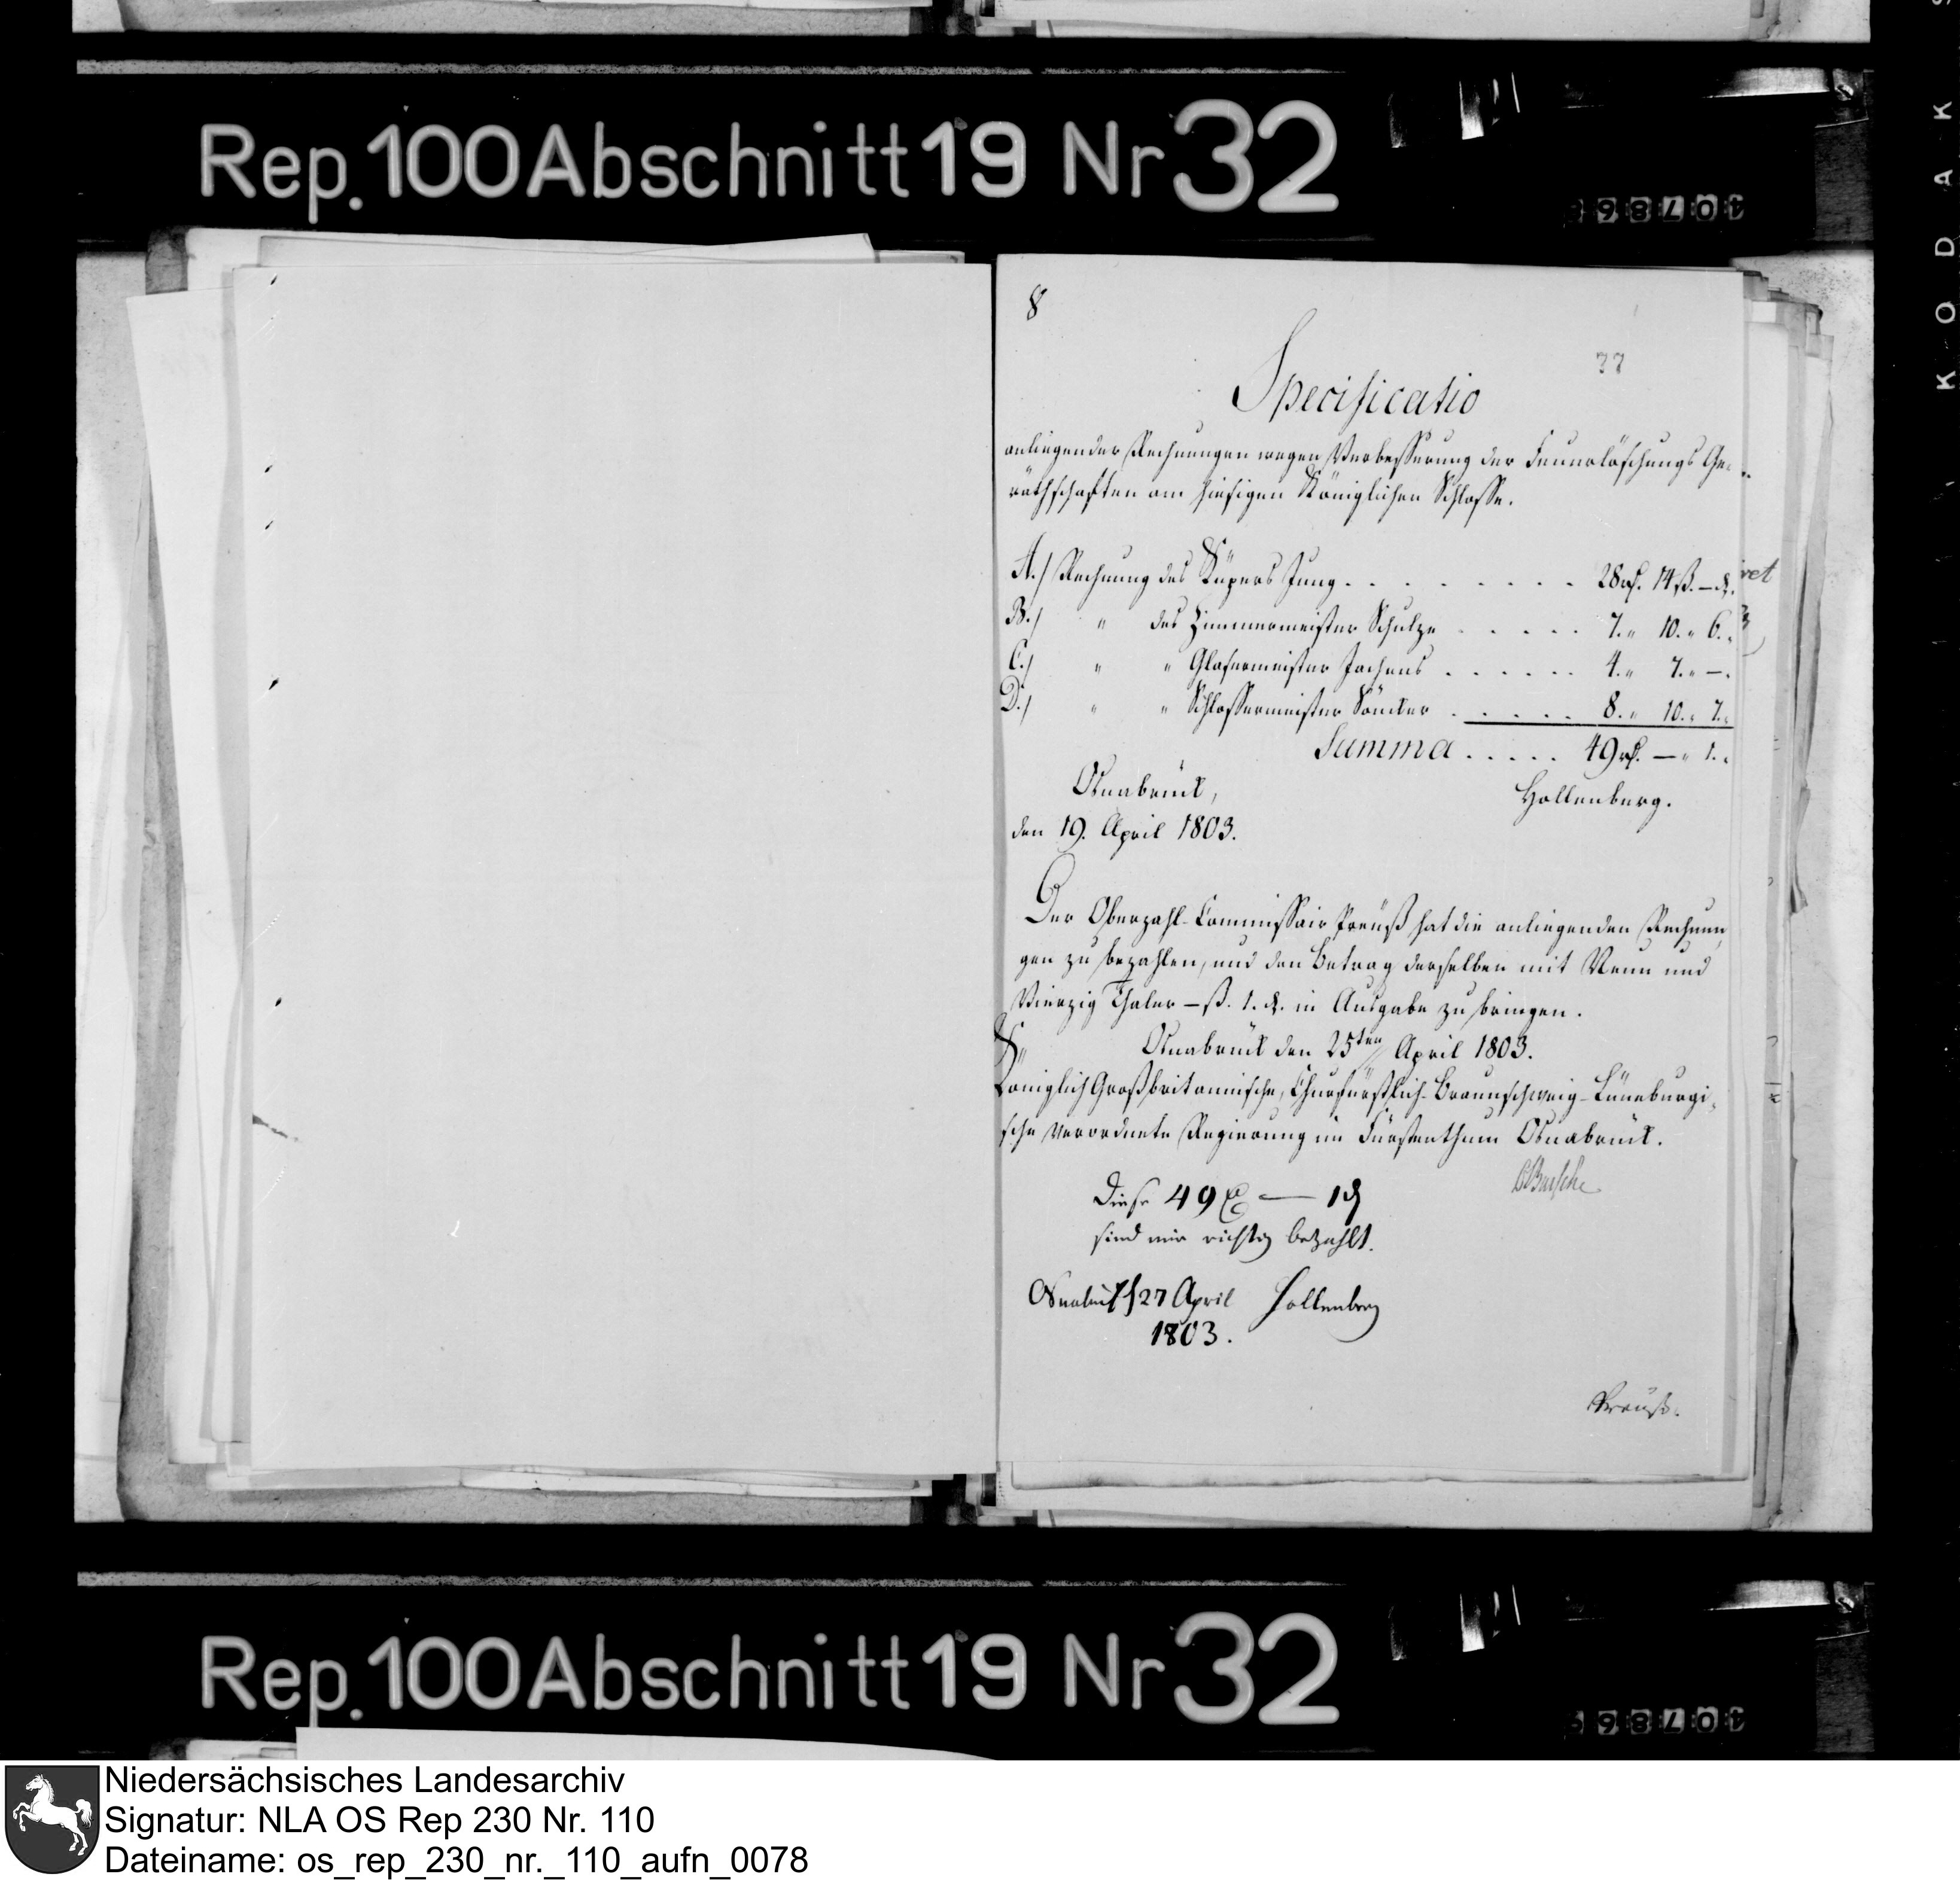 Rep. 100 Abschnitt 19 Nr 32
8
77
Specificatio
anliegender Rechnungen wegen Verbesserung der Feuerlöschungs Ge-
räthschaften am hiesigen Königlichen Schlosse.
A./ Rechnung des Küpers Jung . . . . . . . . . 28 rf. 14 ß. – d.
B./ " des Zimmermeister Schulze . . . . . 7. " 10. " 6. "
C./ " " Glasermeister Jochens . . . . . . 4. " 7. " –.
D./ " " Schlossermeister . . . . . . 8. " 10. " 7. "
Summa . . . . . 49 rf. – " 1. "
Osnabrück,
Hollenberg.
den 19. April 1803.
Der Oberzahl-Commissair Preuß hat die anliegenden Rechnun
gen zu bezahlen, und den Betrag derselben mit Neun und
Vierzig Thaler – ß. 1. d. in Ausgabe zu bringen.
Osnabrück den 25ten April 1803.
Königlich Großbritannische, Churfürstlich-Braunschweig-Lüneburgi-
sche verordnete Regierung im Fürstenthum Osnabrück.
Busche
Diese 49 — 1 d
sind mir richtig bezahlt.
Osnabrück 27 April Hollenberg
1803.
Preuß.
Rep. 100 Abschnitt 19 Nr 32
KODAK
Niedersächsisches Landesarchiv
Signatur: NLA OS Rep 230 Nr. 110
Dateiname: os_rep_230_nr._110_aufn_0078